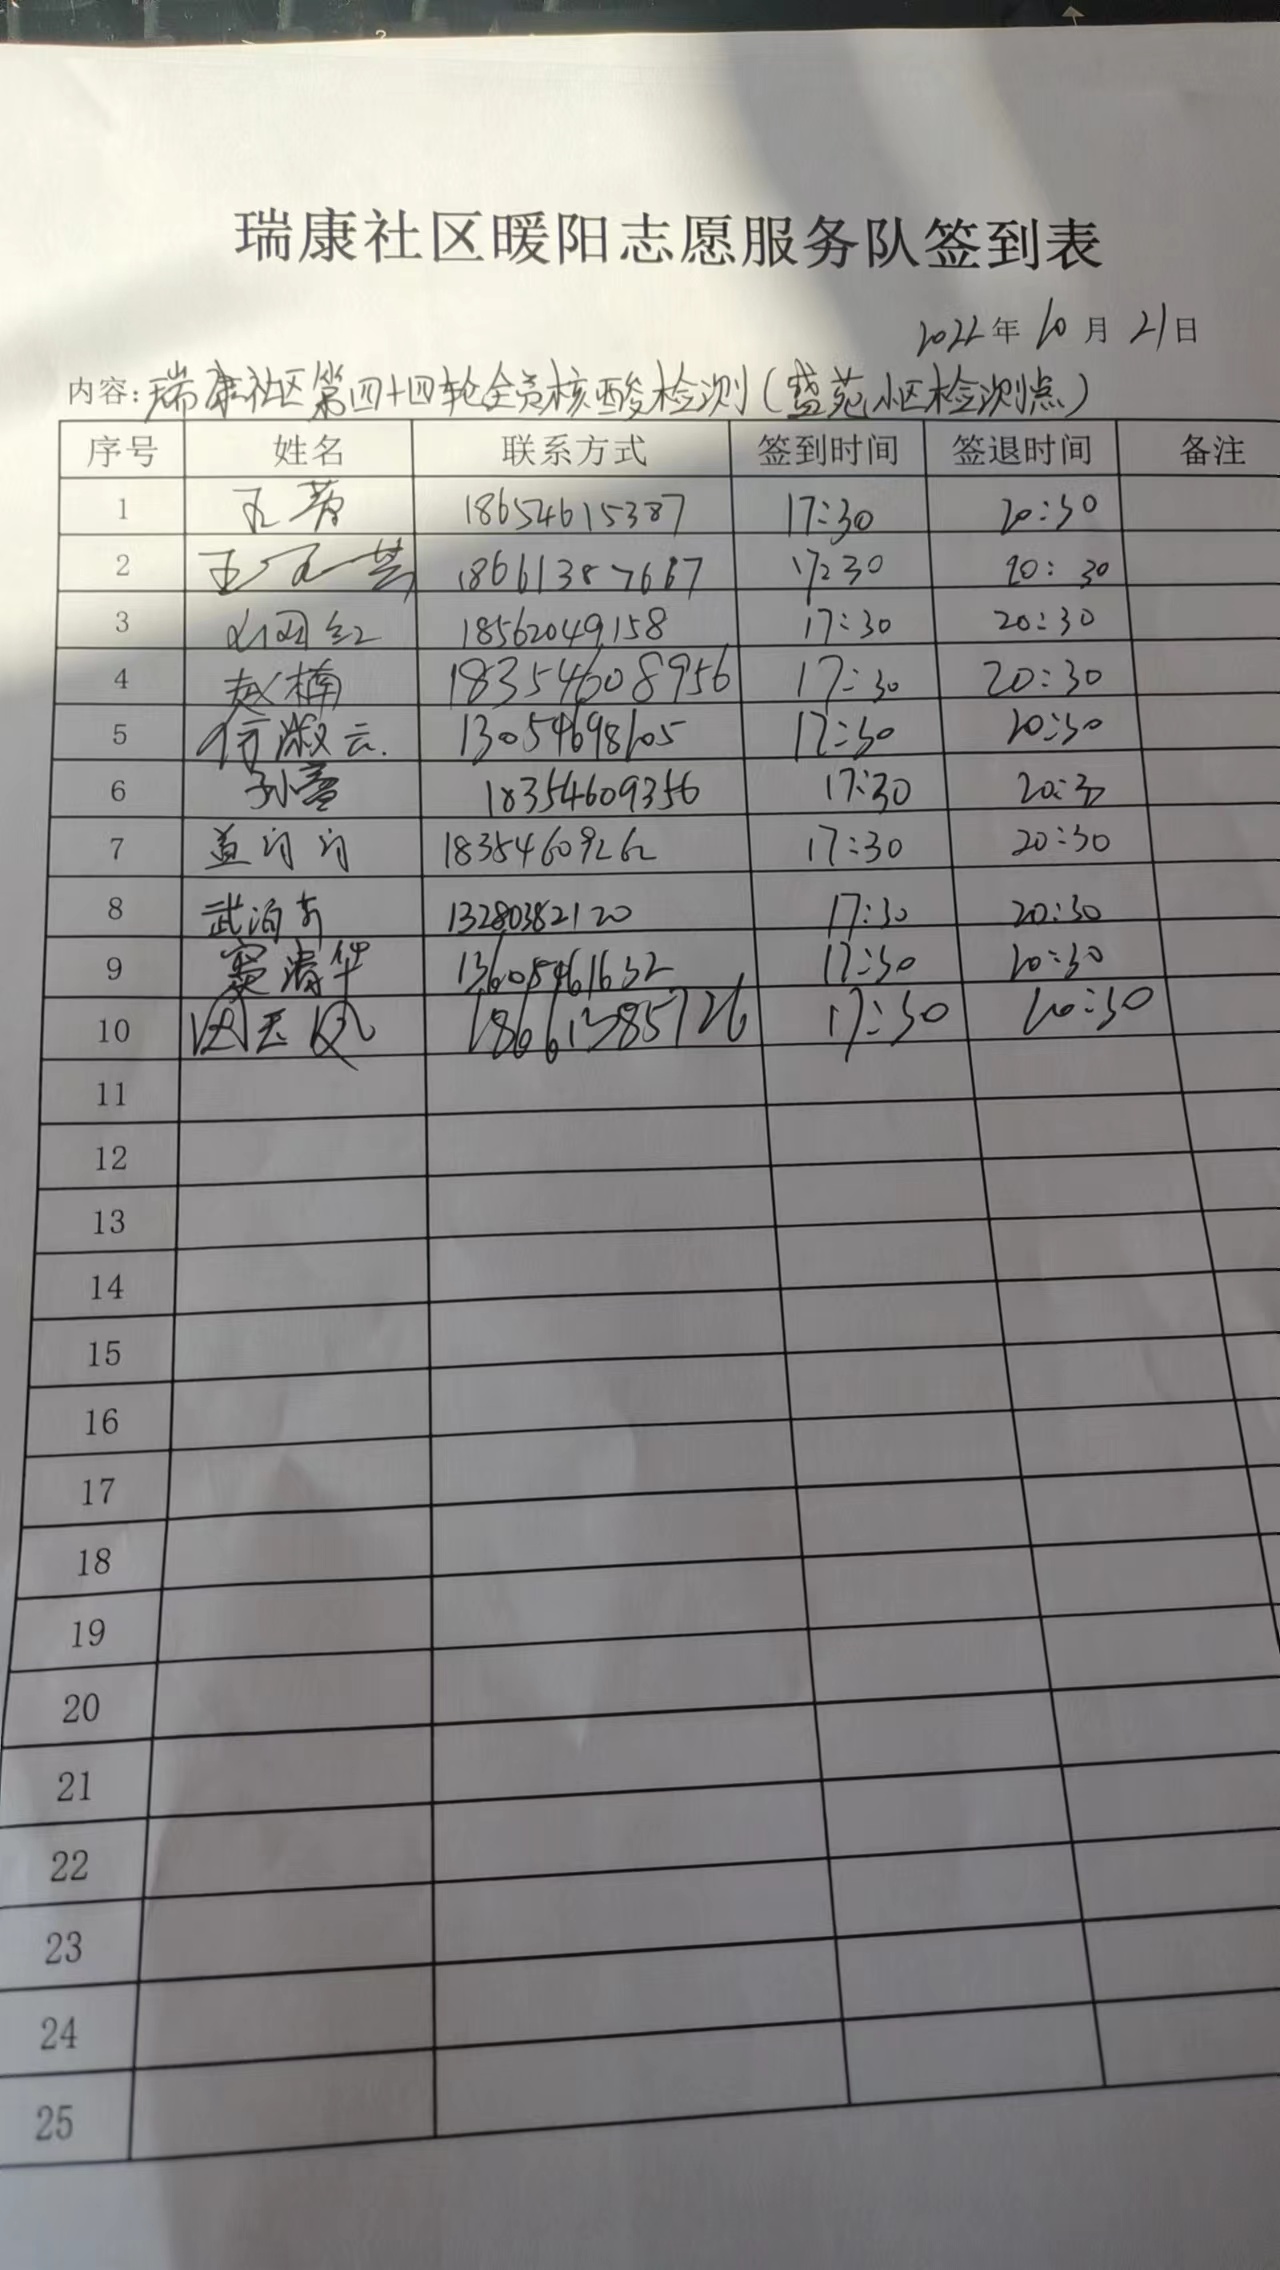 瑞康社区暖阳志愿服务队签到表
2022年10月21日
内容:瑞康社区第四十四轮全员核酸检测(盛苑小区检测点)
序号 姓名 联系方式 签到时间 签退时间 备注
1 王 18654615387 17:30 20:30
2 王 17:30 20:30
3 18562049158 17:30 20:30
4 赵楠 18354608956 17:30 20:30
5 信淑云 13054698605 17:30 20:30
6 孙 18354609356 17:30 20:30
7 盖 18354609262 17:30 20:30
8 武 13280382120 17:30 20:30
9 窦清华 13605461632 17:30 20:30
10 18661385726 17:30 20:30
11
12
13
14
15
16
17
18
19
20
21
22
23
24
25